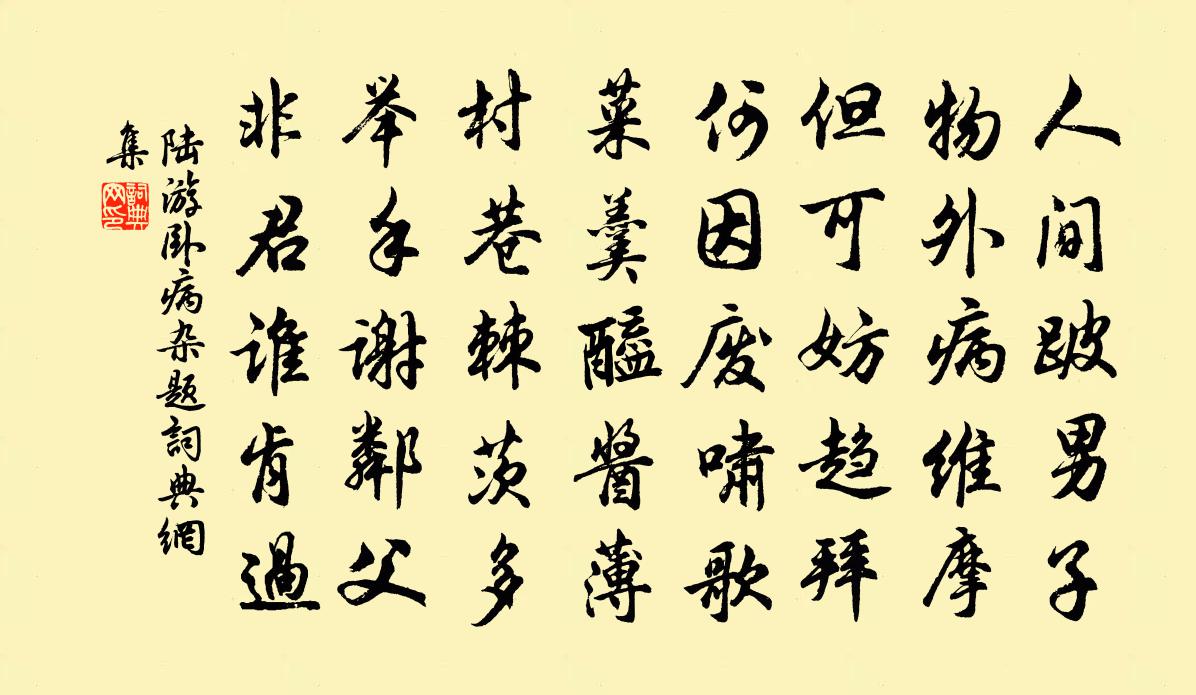 人间跛男子
物外病维摩
但可妨趋拜
何因废啸歌
菜羹醯醬薄
村巷棘茨多
举手谢鄰父
非君谁肯過
陆游卧病杂题詞典網
集
詞典
网印